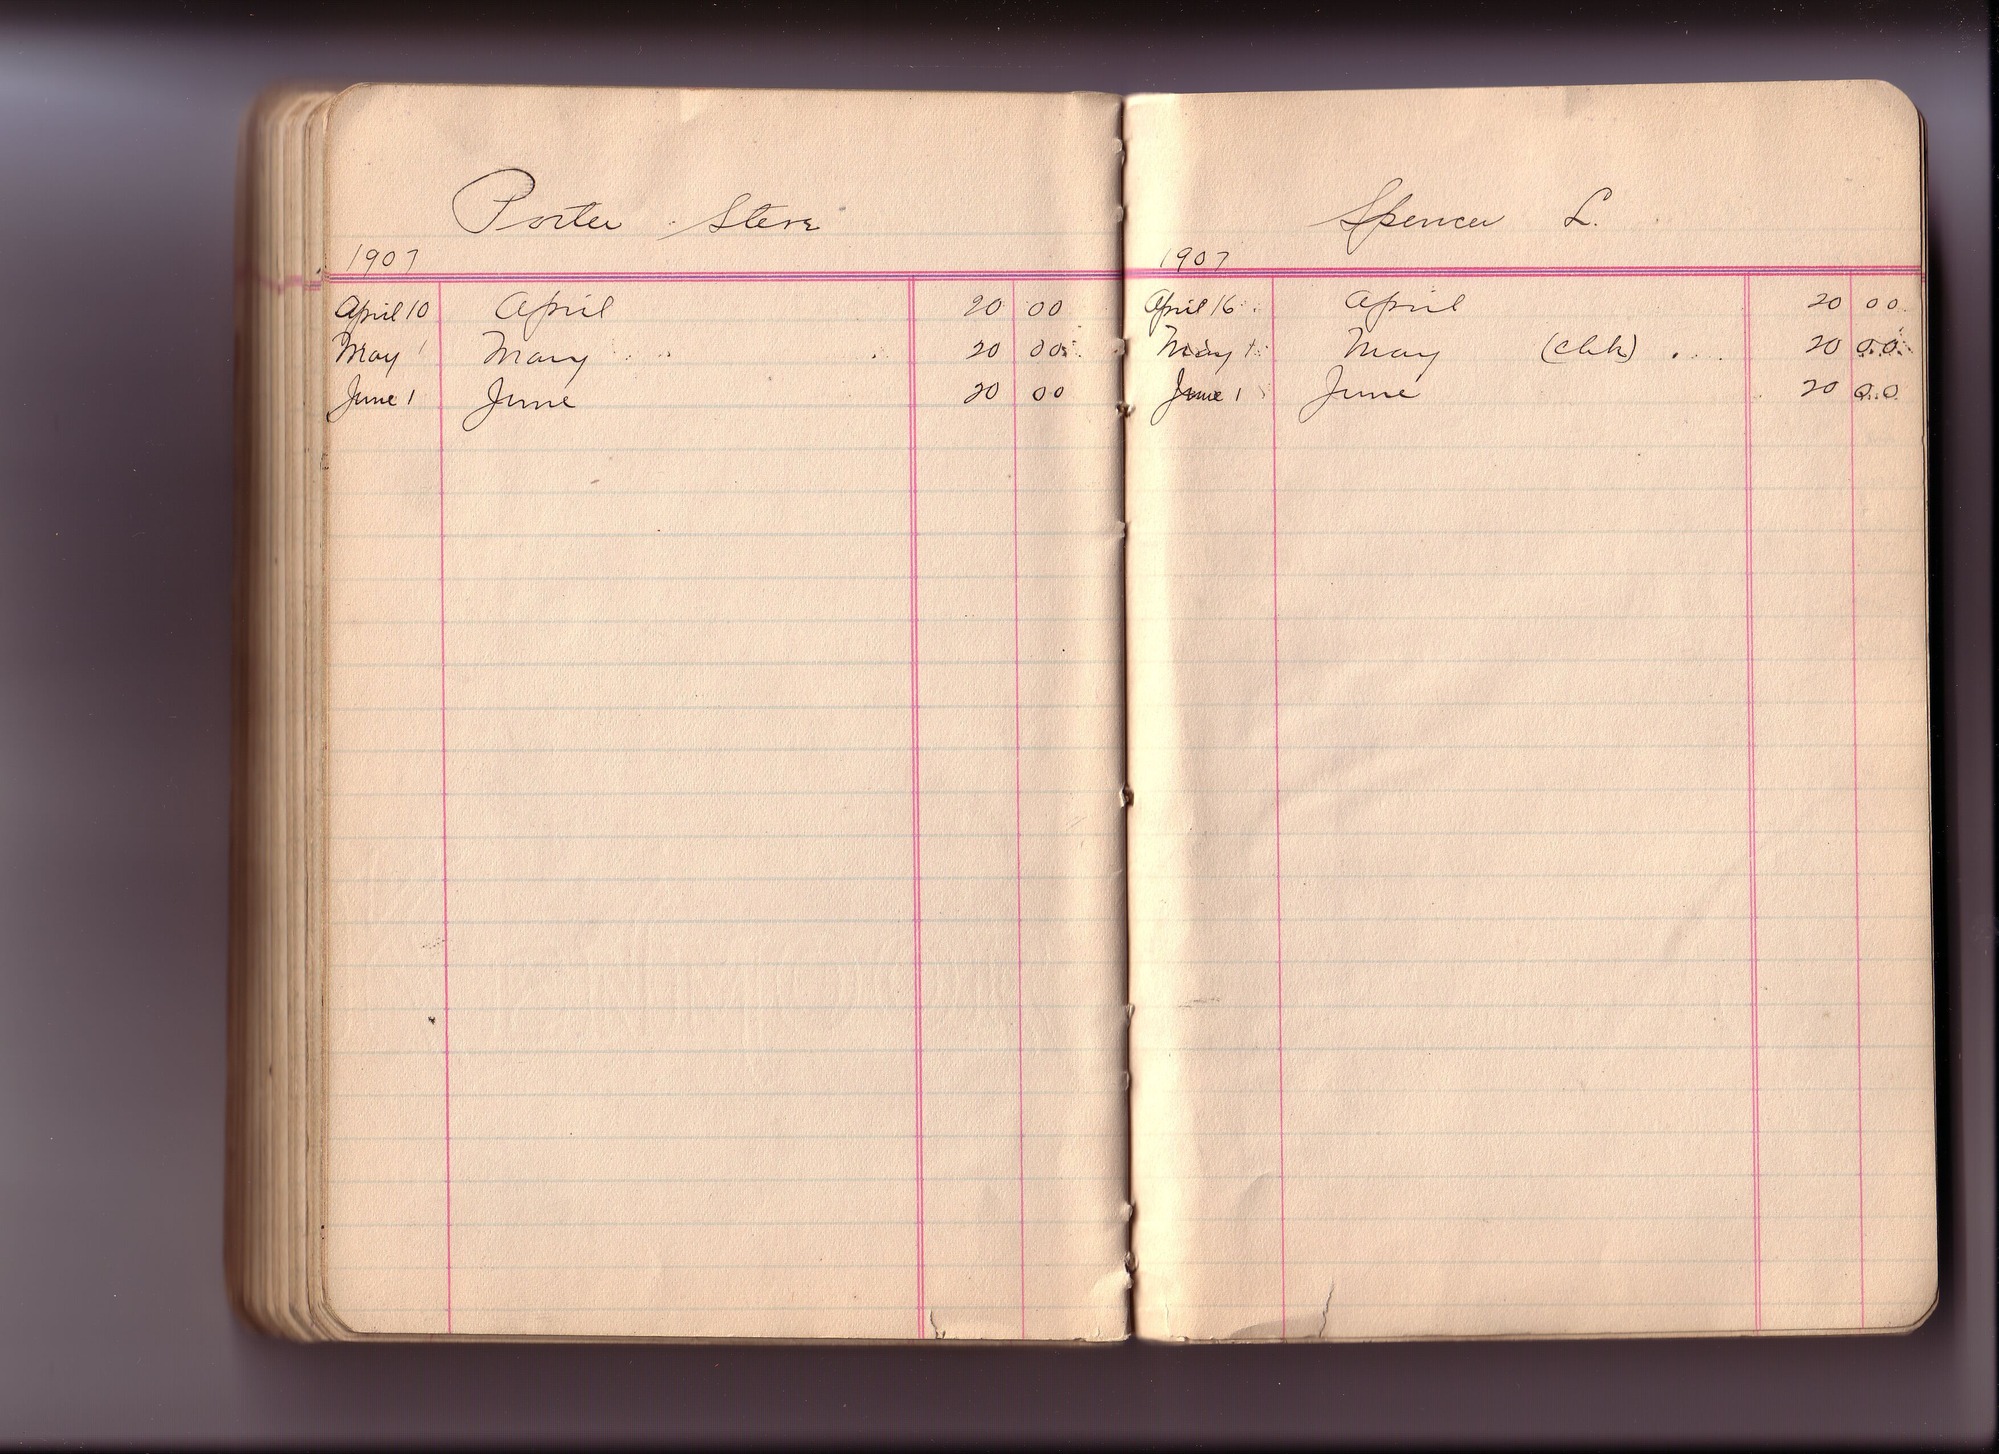 Porter Steve
1907
April 10 April 20 00
May 1 May 20 00
June 1 June 20 00
Spencer L.
1907
April 16 April 20 00
May 1 May (chk) 20 00
June 1 June 20 00